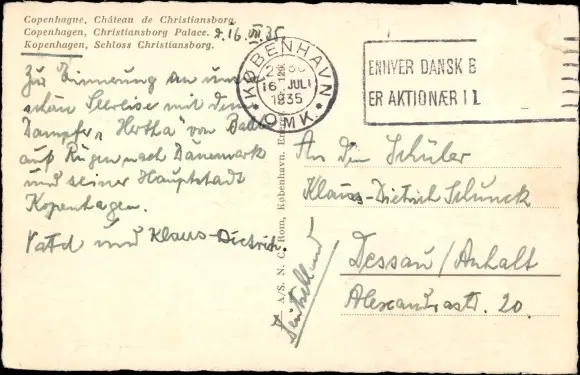 Copenhague, Château de Christiansborg.
Copenhagen, Christiansborg Palace.
Kopenhagen, Schloss Christiansborg.
d. 16. VII. 35
Zur Erinnerung an unsere
schöne Seereise mit dem
Dampfer „Hertha" von
auf Rügen nach Dänemark
und seiner Hauptstadt
Kopenhagen.
Vati und Klaus-Dietrich.
KØBENHAVN
16 JULI
1935
OMK.
ENHVER DANSK B
ER AKTIONÆR I L
A/S. N. C. Rom, København.
An den Schüler
Klaus-Dietrich Schunck
Dessau/Anhalt
Alexandrastr. 20.
Deutschland